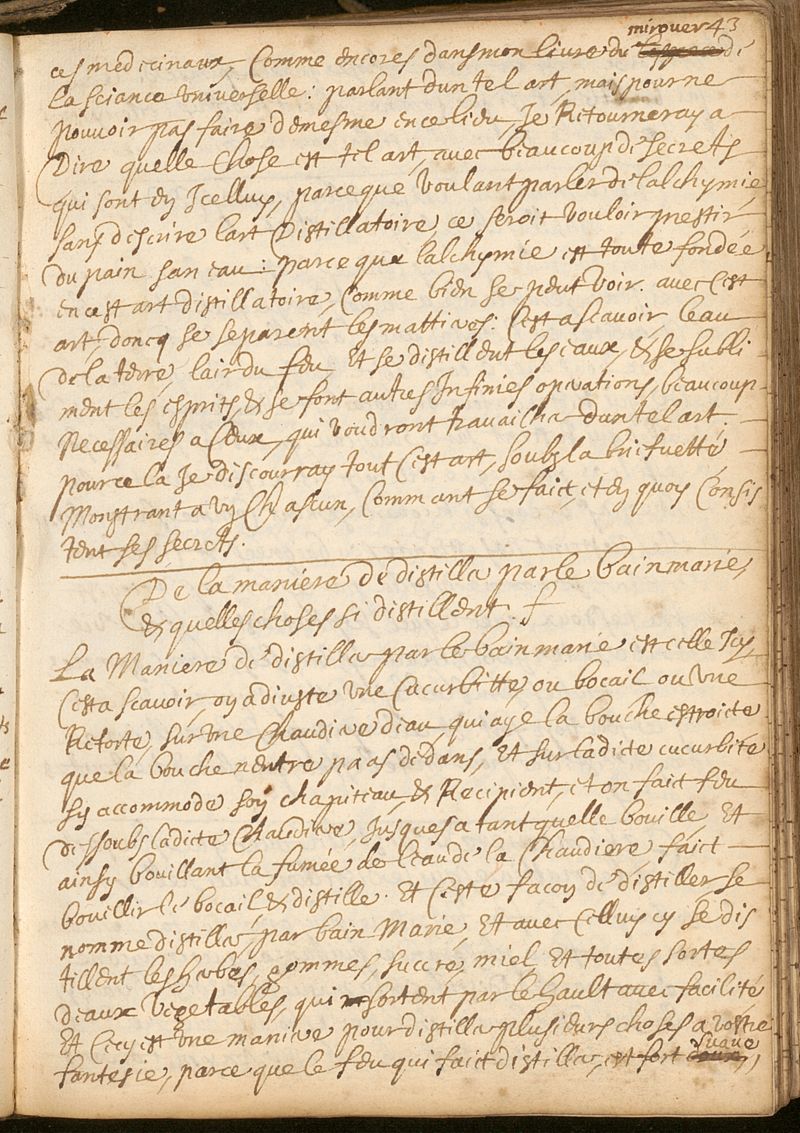 mirouer 43
ces medecinaux, Comme encores dans mon livre du de
La sciance universelle: parlant dun tel art, mais pour ne
pouvoir pas faire de mesme en ce lieu, Je Retourneray a
Dire quelle chose est tel art, avec beaucoup de secrets
qui sont en Jcelluy, parce que voulant parler de lalchymie
sans descrire lart Distillatoire, ce seroit vouloir pestir
du pain san eau: parce que lalchymie est toute fondée
en cest art distillatoire, Comme bien se peut voir. avec Cest
art, doncq se separent les mattieres: Cest a scavoir, leau
de la terre, lair du feu, Et se distillent les eaux, & se subli
ment les esprits, & se font autres Infinies operations, beaucoup
Necessaires a Ceux, qui voudront travailher dun tel art.
pource la Je discourray tout Cest art, soubz la briefvetté
Monstrant a un Chascun, Commant se faict, et en quoy Consis
tent ses secrets.
De la maniere de distiller par le bain marie,
& quelles choses si distillent. f
La Maniere de distiller par le bain marie est celle Icy,
Cest a scavoir, on adjuste une Cucurbitte, ou bocail ou une
Retorte, sur une Chaudiere deau, qui aye la bouche estroicte
que la bouche nentre pas dedans, Et sur ladicte cucurbite
sy accommode son chapiteau, & Recipient, et on faict feu
dessoubs ladicte Chaudiere, Jusques a tant quelle bouille, Et
ainsy bouillant la fumée de leau de la Chaudiere, faict
bouillir le bocail, & distille. Et Ceste facon de distiller se
nomme distiller par bain Marie, Et avec Celluy cy se dis
tillent les herbes, gommes, succre, miel, Et toutes sortes
deaux vegetables, qui sortent par le hault avec facilité
Et Cecy est une maniere pour distiller plusieurs choses a vostre
fantesie, parce que le feu qui faict distiller, est fort suave,